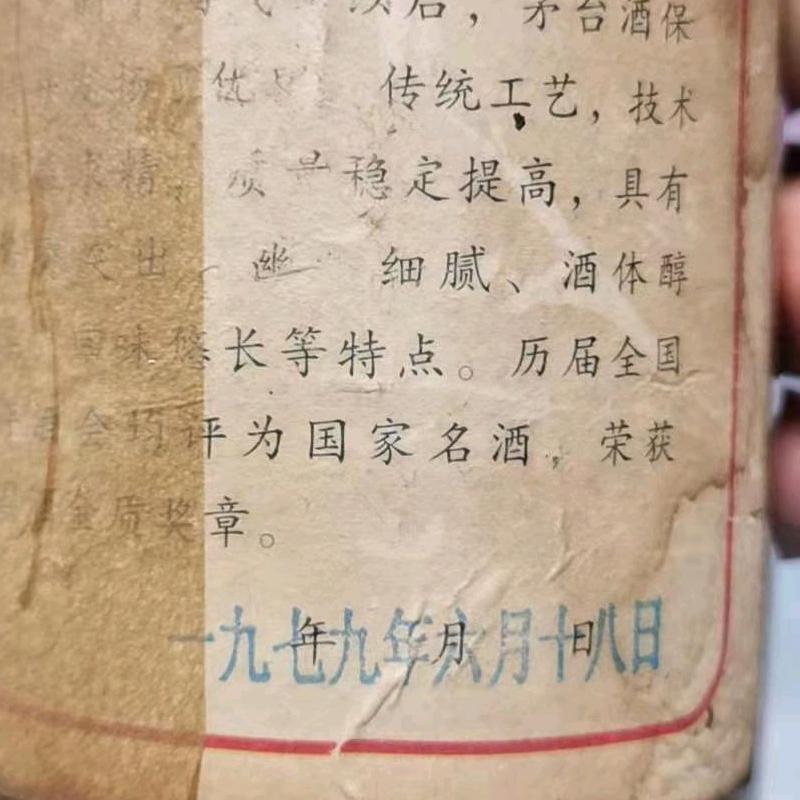 后，茅台酒保
优 传统工艺，技术
精，质量稳定提高，具有
突出 幽 细腻、酒体醇
回味悠长等特点。历届全国
评酒会均评为国家名酒，荣获
国家金质奖章。
年 月 日
一九七九年六月十八日